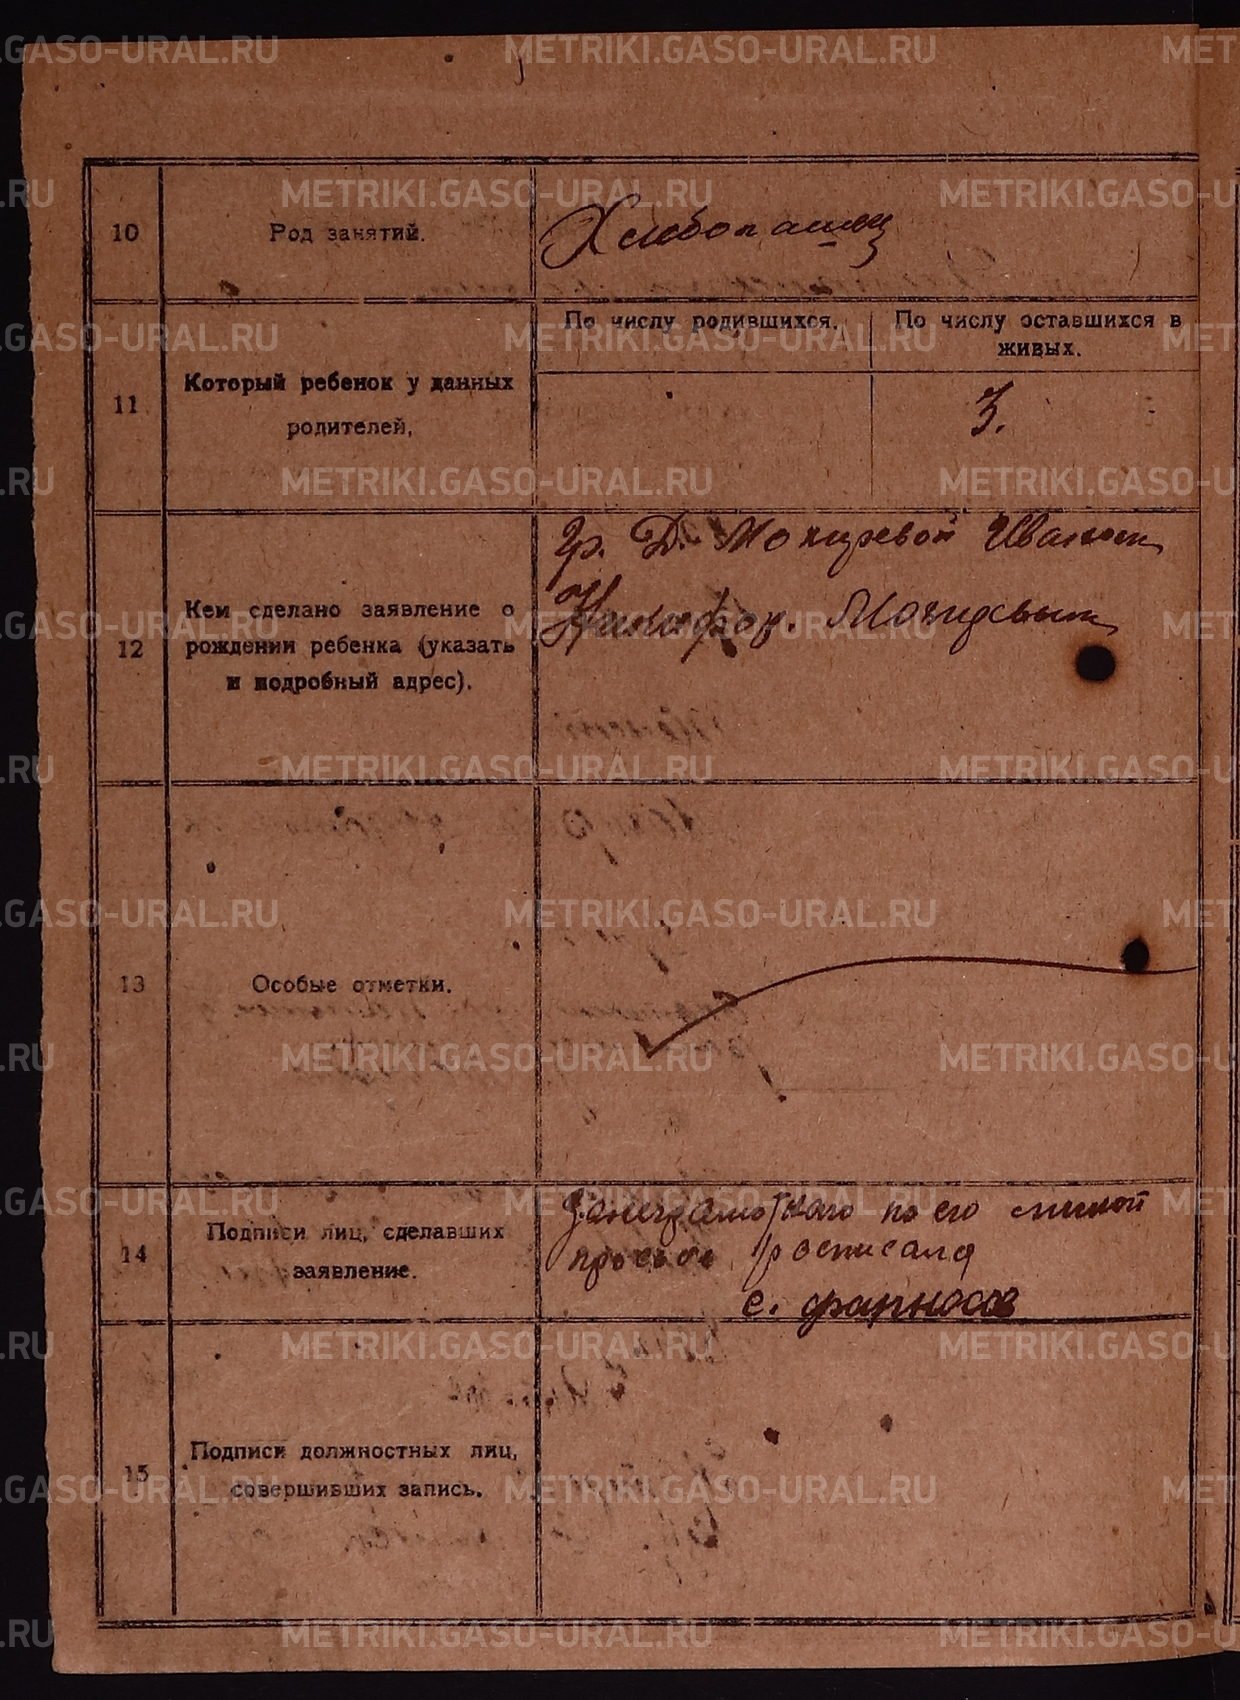 10
Род занятий.
Хлебопашец
11
Который ребенок у данных
родителей,
По числу родившихся.
По числу оставшихся в
живых.
3.
12
Кем сделано заявление о
рождении ребенка (указать
и подробный адрес).
Гр. Д. Мокиревой Иваном
Никифор.
13
Особые отметки.
14
Подписи лиц, сделавших
заявление.
Занеграмотнаго по его личной
просьбе росписался
с. фарносов
15
Подписи должностных лиц,
совершивших запись.
METRIKI.GASO-URAL.RU